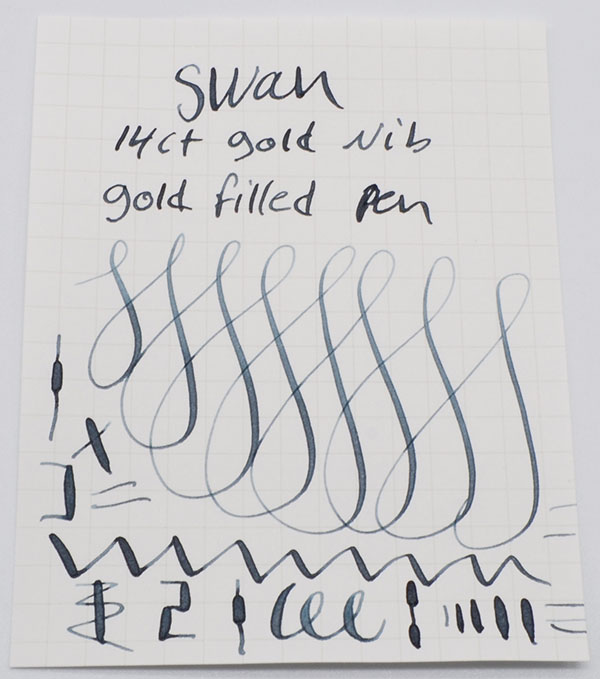 Swan
14ct gold Nib
gold filled pen